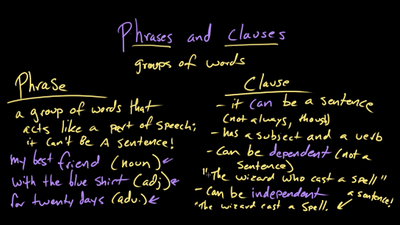 Phrases and Clauses
groups of words
Phrase
a group of words that
acts like a part of speech;
it can't be A sentence!
my best friend (noun)
with the blue shirt (adj)
for twenty days (adv.)
Clause
- it can be a sentence
(not always, though)
- has a subject and a verb
- can be dependent (not a
sentence)
"The wizard who cast a spell"
- can be independent
a sentence!
"The wizard cast a spell."